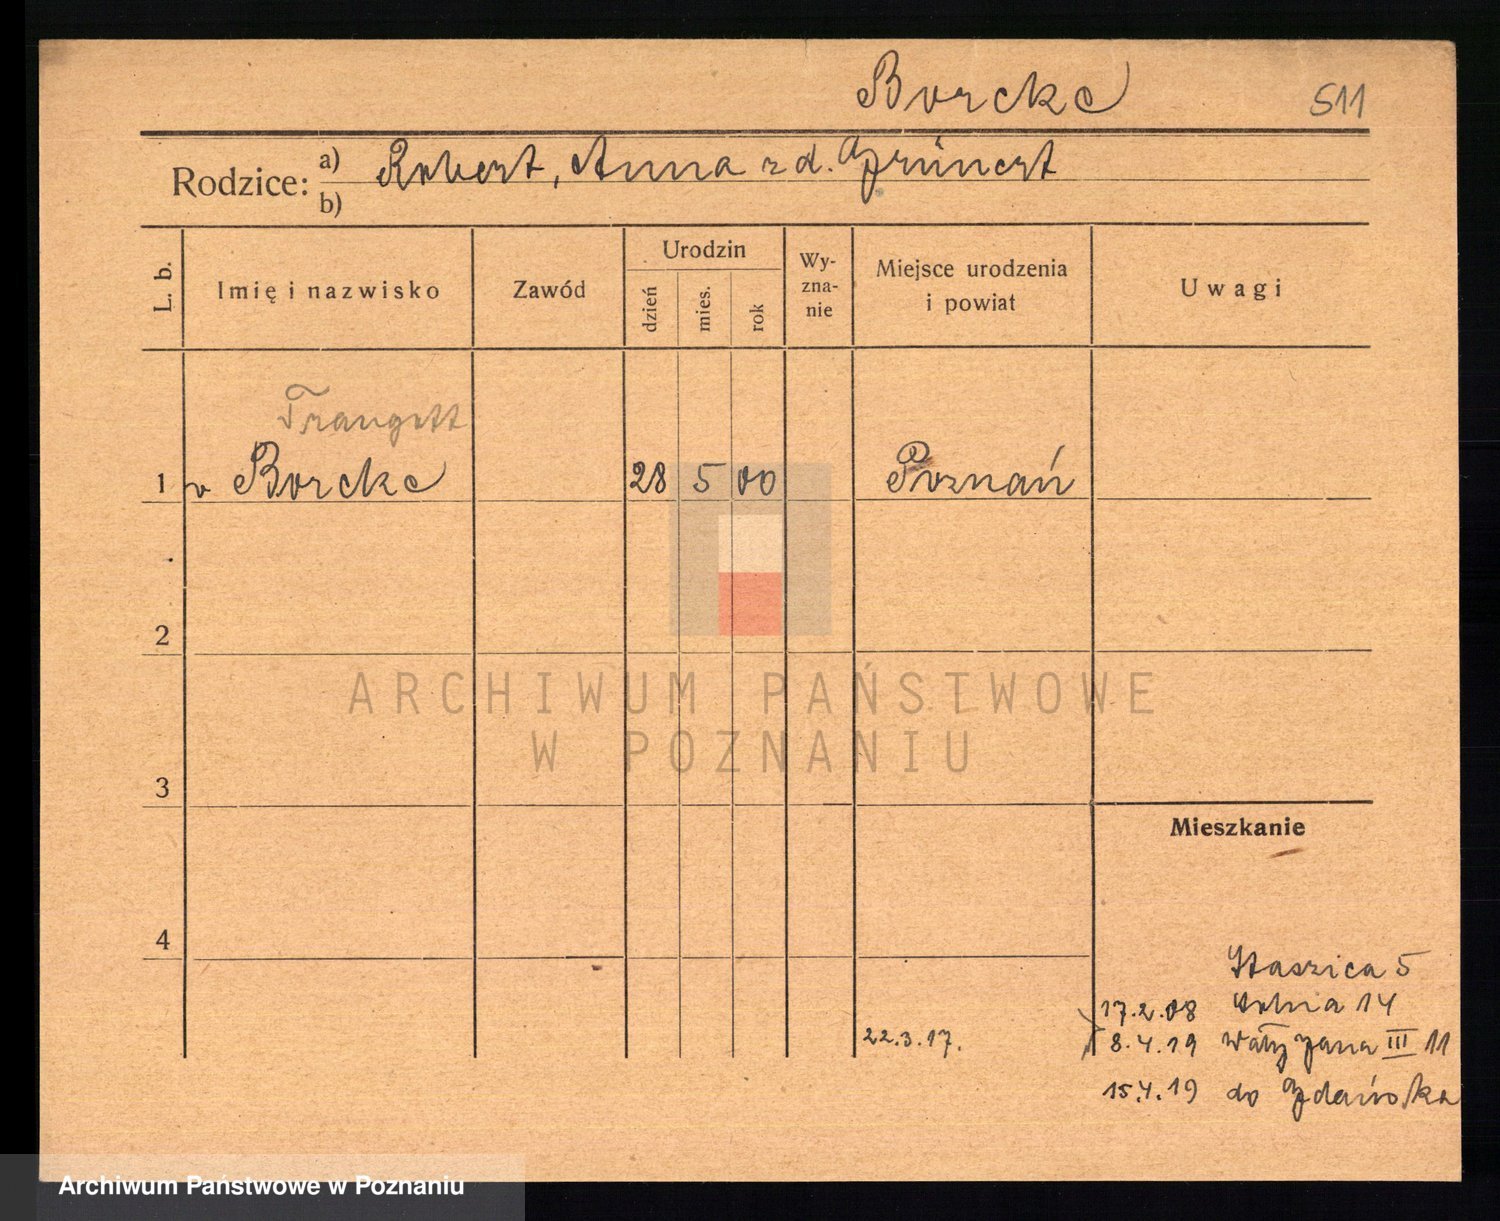 Borcke 511
Rodzice: a) Robert, Anna zd. Grünert
b)
L. b. Imię i nazwisko Zawód Urodzin dzień mies. rok Wy-zna-nie Miejsce urodzenia i powiat Uwagi
Traugott
1 v Borcke 28 5 00 Poznań
2
ARCHIWUM PAŃSTWOWE
W POZNANIU
3
Mieszkanie
4
Staszica 5
17.2.08 14
22.3.17. 8.4.19 III 11
15.4.19 do Gdańska
Archiwum Państwowe w Poznaniu